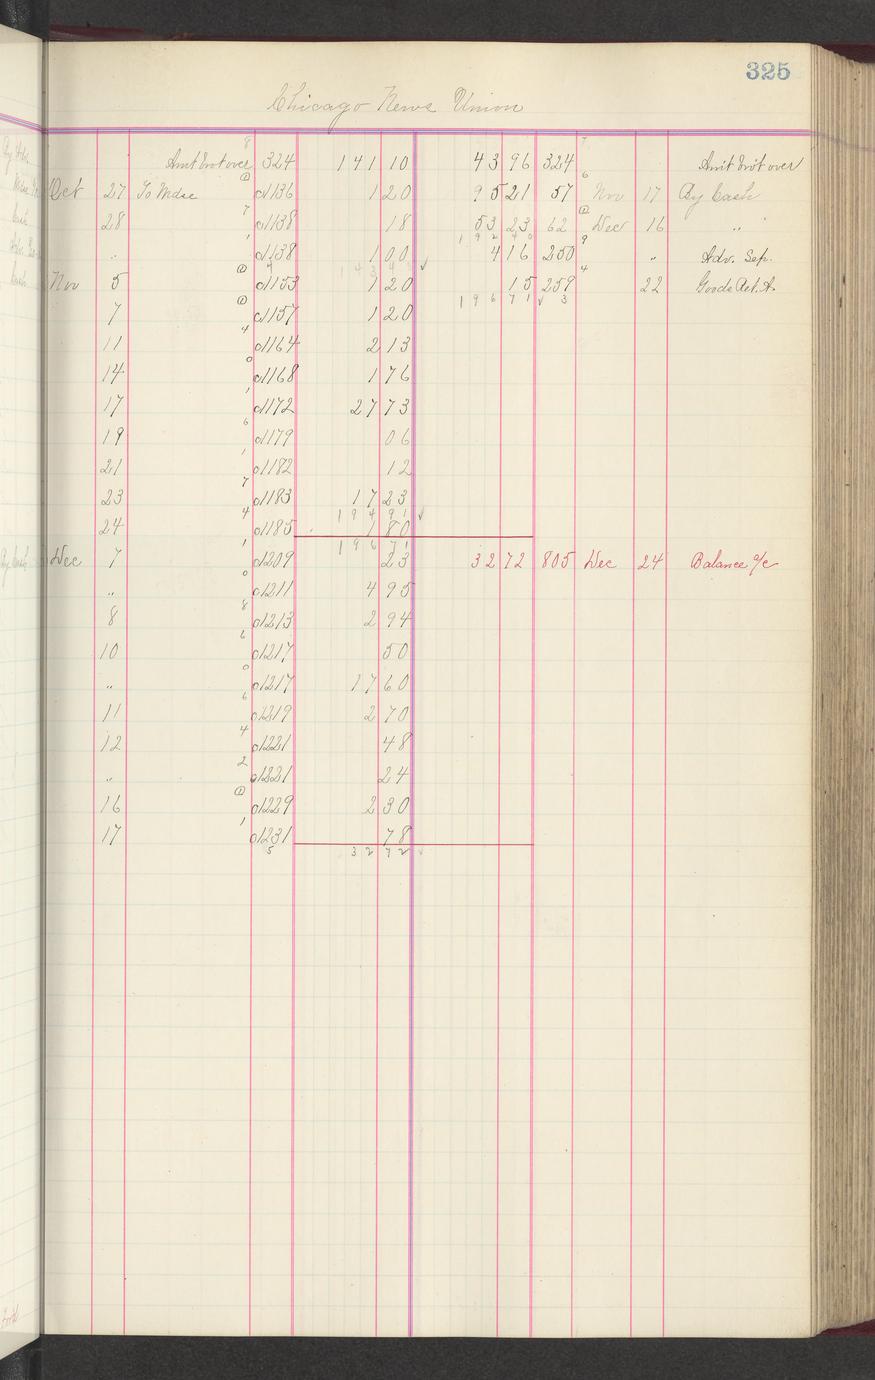 325
Chicago News Union
8 7
Amt bro't over 324 141 10 43 96 324 Amt bro't over
① 6
Oct 27 To Mdse c/1136 1 20 95 21 57 Nov 17 By Cash
7 ①
28 c/1138 18 53 23 62 Dec 16 "
1 192 40 9
" c/1138 1 00 4 16 250 " Adv. Sep.
① 4 143 4
Nov 5 c/1153 1 20 15 259 22 Goods Ret. A
① 196 71 3
7 c/1157 1 20
4
11 c/1164 2 13
0
14 c/1168 1 76
1
17 c/1172 27 73
6
19 c/1179 06
1
21 c/1182 12
7
23 c/1183 17 23
4 194 91
24 c/1185 1 80
1 196 71
Dec 7 c/1209 23 32 72 805 Dec 24 Balance a/c
0
" c/1211 4 95
8
8 c/1213 2 94
6
10 c/1217 50
0
" c/1217 17 60
6
11 c/1219 2 70
4
12 c/1221 48
2
" c/1221 24
①
16 c/1229 2 30
1
17 c/1231 78
5 32 72